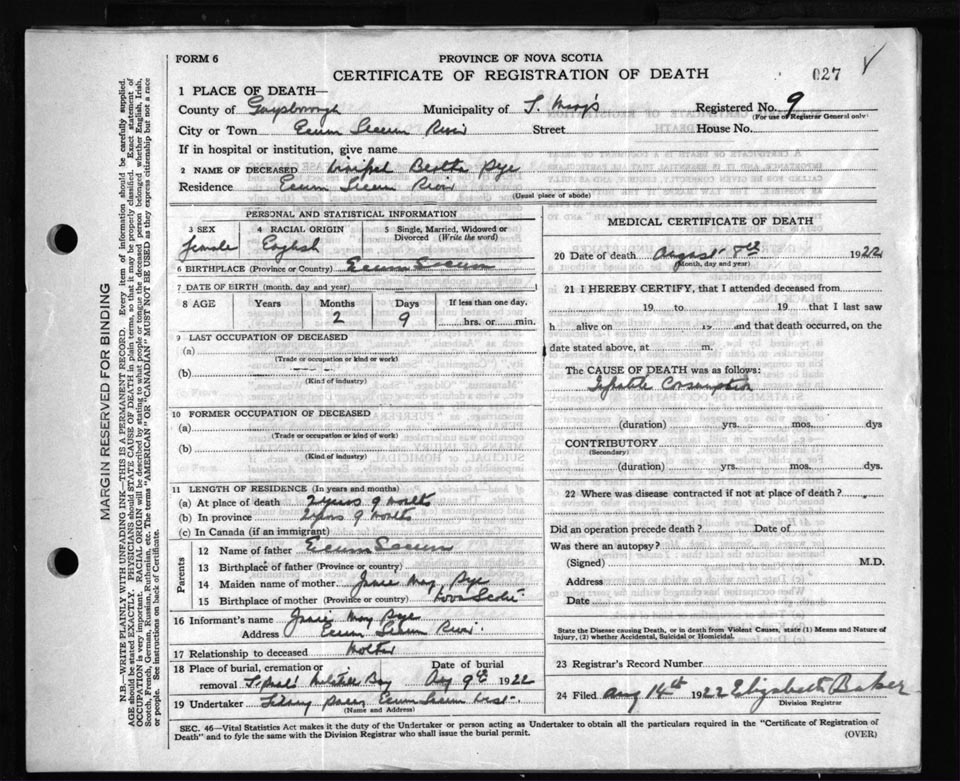 FORM 6
PROVINCE OF NOVA SCOTIA
CERTIFICATE OF REGISTRATION OF DEATH
027
1 PLACE OF DEATH—
County of Guysborough Municipality of St. Mary's Registered No. 9
(For use of Registrar General only)
City or Town Ecum Secum River Street House No.
If in hospital or institution, give name
2 NAME OF DECEASED Winifred Bertha Pye
Residence Ecum Secum River
(Usual place of abode)
PERSONAL AND STATISTICAL INFORMATION
3 SEX 4 RACIAL ORIGIN 5 Single, Married, Widowed or Divorced (Write the word)
female English
6 BIRTHPLACE (Province or Country) Ecum Secum
7 DATE OF BIRTH (month, day and year)
8 AGE Years Months Days If less than one day,
2 9 hrs. or min.
9 LAST OCCUPATION OF DECEASED
(a)
(Trade or occupation or kind or work)
(b)
(Kind of industry)
10 FORMER OCCUPATION OF DECEASED
(a)
(Trade or occupation or kind of work)
(b)
(Kind of industry)
11 LENGTH OF RESIDENCE (In years and months)
(a) At place of death 2 years 9 months
(b) In province 2 years 9 months
(c) In Canada (if an immigrant)
Parents
12 Name of father Ecum Secum
13 Birthplace of father (Province or country)
14 Maiden name of mother May Pye
15 Birthplace of mother (Province or country) Nova Scotia
16 Informant's name May Pye
Address Ecum Secum River
17 Relationship to deceased Mother
18 Place of burial, cremation or Date of burial
removal Bay Aug 9th 1922
19 Undertaker Ecum Secum West
(Name and Address)
MEDICAL CERTIFICATE OF DEATH
20 Date of death August 8th 1922
(Month, day and year)
21 I HEREBY CERTIFY, that I attended deceased from
19 to 19 that I last saw
h alive on 19 and that death occurred, on the
date stated above, at m.
The CAUSE OF DEATH was as follows:
Consumption
(duration) yrs. mos. dys
CONTRIBUTORY
(Secondary)
(duration) yrs. mos. dys.
22 Where was disease contracted if not at place of death?
Did an operation precede death? Date of
Was there an autopsy?
(Signed) M.D.
Address
Date
State the Disease causing Death, or in death from Violent Causes, state (1) Means and Nature of
Injury, (2) whether Accidental, Suicidal or Homicidal.
23 Registrar's Record Number
24 Filed Aug 14th 1922 Elizabeth Baker
Division Registrar
SEC. 46—Vital Statistics Act makes it the duty of the Undertaker or person acting as Undertaker to obtain all the particulars required in the "Certificate of Registration of
Death" and to fyle the same with the Division Registrar who shall issue the burial permit.
(OVER)
MARGIN RESERVED FOR BINDING
N.B.—WRITE PLAINLY WITH UNFADING INK—THIS IS A PERMANENT RECORD. Every item of information should be carefully supplied.
AGE should be stated EXACTLY. PHYSICIANS should STATE CAUSE OF DEATH in plain terms, so that it may be properly classified. Exact statement of
OCCUPATION is very important. RACIAL ORIGIN will be described by stating to what people or tongue the deceased person belonged whether English, Irish,
Scotch, French, German, Russian, Ruthenian, etc. The terms "AMERICAN" OR "CANADIAN" MUST NOT BE USED as they express citizenship but not a race
or people. See instructions on back of Certificate.